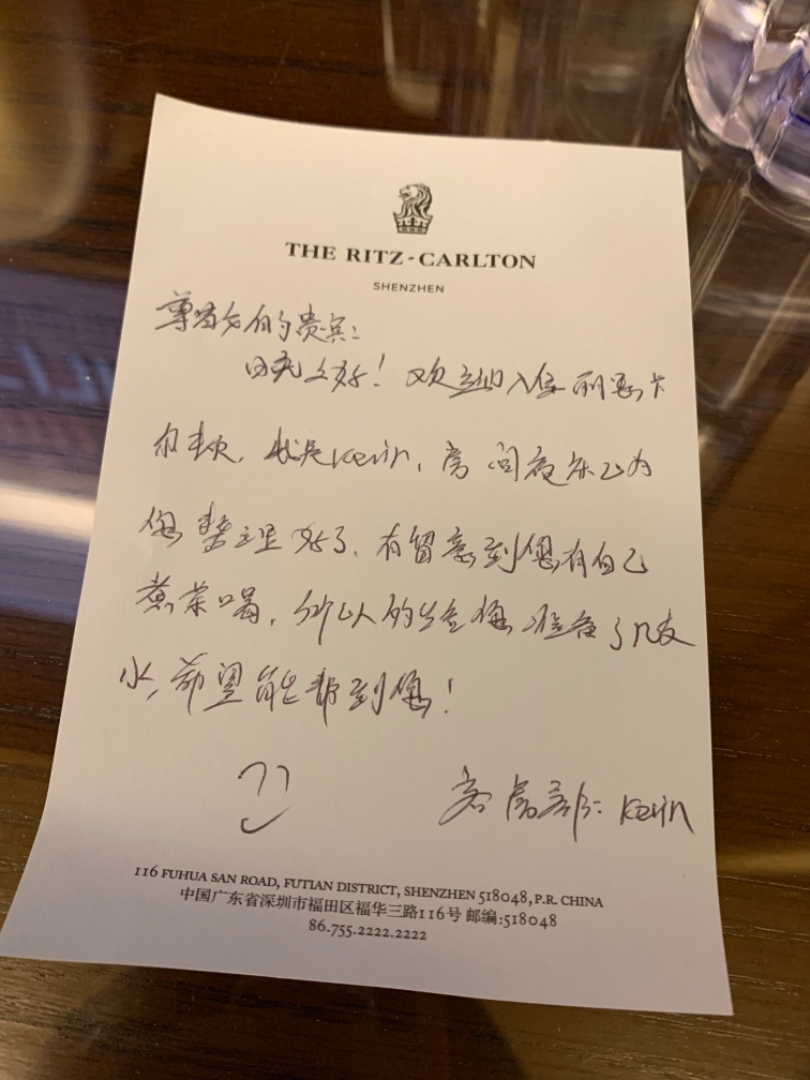 THE RITZ-CARLTON
SHENZHEN
尊敬的贵宾:
晚上好! 欢迎入住丽思卡
尔顿, 我是Kevin, 房间夜床已为
您整理好了, 有留意到您有自己
煮茶喝, 所以给您准备了几支
水, 希望能帮到您!
客房部: Kevin
116 FUHUA SAN ROAD, FUTIAN DISTRICT, SHENZHEN 518048, P.R. CHINA
中国广东省深圳市福田区福华三路116号 邮编:518048
86.755.2222.2222